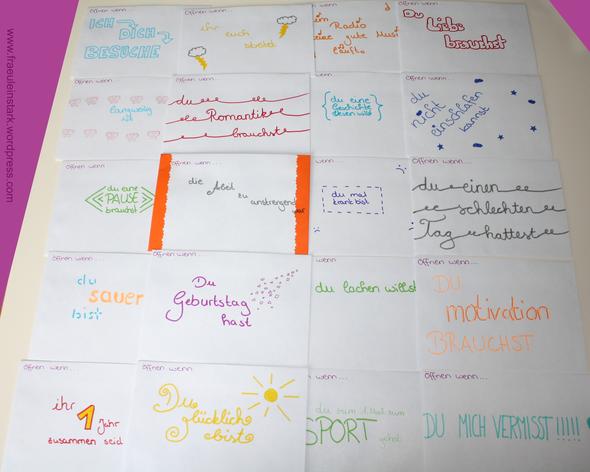 www.fraeuleinstark.wordpress.com
Öffnen wenn...
ICH
DICH
BESUCHE
Öffnen wenn...
ihr euch
streitet
im Radio
eine gute Musi
läuft
Öffnen wenn...
Du
Liebe
brauchst
Öffnen wenn...
langweilig
ist
Öffnen wenn...
du
Romantik
brauchst
du eine
Geschichte
lesen willst
Öffnen wenn...
du
nicht
einschlafen
kannst
Öffnen wenn...
du eine
PAUSE
brauchst
Öffnen wenn...
die
zu
anstrengend
war
du mal
krank bist
Öffnen wenn...
du einen
schlechten
Tag hattest
Öffnen wenn...
du
sauer
bist
Öffnen wenn...
Du
Geburtstag
hast
wenn...
du lachen willst
Öffnen wenn...
DU
motivation
BRAUCHST
Öffnen wenn...
ihr 1 Jahr
zusammen seid
Öffnen wenn...
Du
glücklich
bist
wenn...
du zum 1.Mal zum
SPORT gehst
Öffnen wenn...
DU MICH VERMISST!!!!!